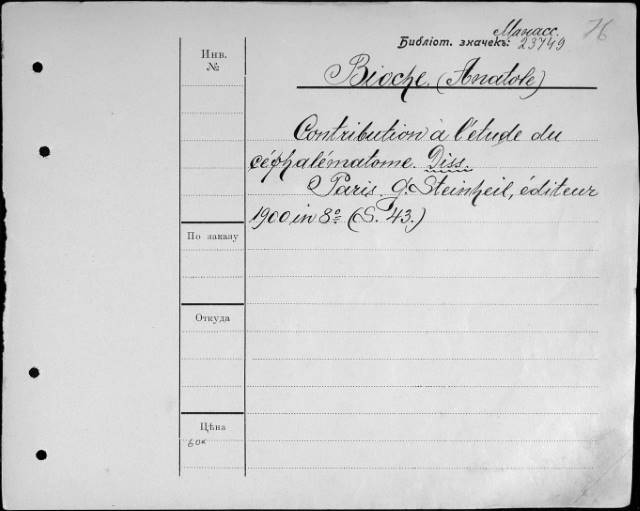 Манасс. 76
Библіот. значекъ: 23749
Инв.
№
Bioche. (Anatole)
Contribution à l'étude du
céphalématome. Diss.
Paris. G. Steinheil, éditeur
1900 in 8º (S. 43.)
По заказу
Откуда
Цѣна
60к